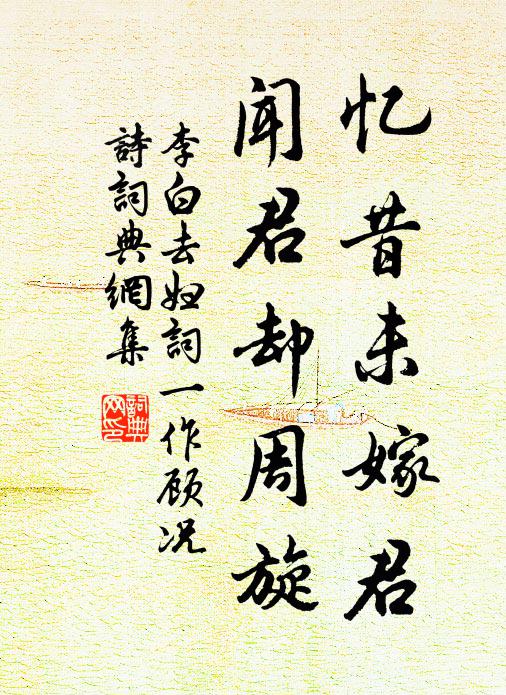 忆昔未嫁君
闻君却周旋
李白去妇词一作顾况
詩詞典網集
詞典网印